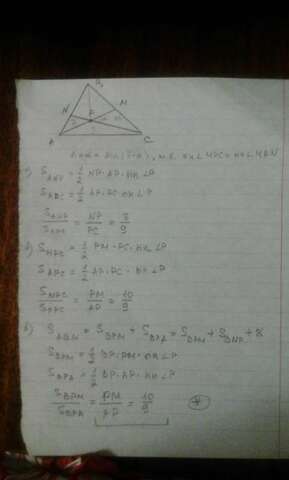 B
N M
P
A C
sin α = sin (π-α), т.е. sin∠MPC = sin∠APN
а) S_ANP = 1/2 NP·AP·sin∠P
S_APC = 1/2 AP·PC·sin∠P
S_ANP / S_APC = NP / PC = 8/9
б) S_MPC = 1/2 PM·PC·sin∠P
S_APC = 1/2 AP·PC·sin∠P
S_MPC / S_APC = PM / AP = 10/9
в) S_ABM = S_BPM + S_BPA = S_BPM + S_BNP + 8
S_BPM = 1/2 BP·PM·sin∠P
S_BPA = 1/2 BP·AP·sin∠P
S_BPM / S_BPA = PM / AP = 10/9